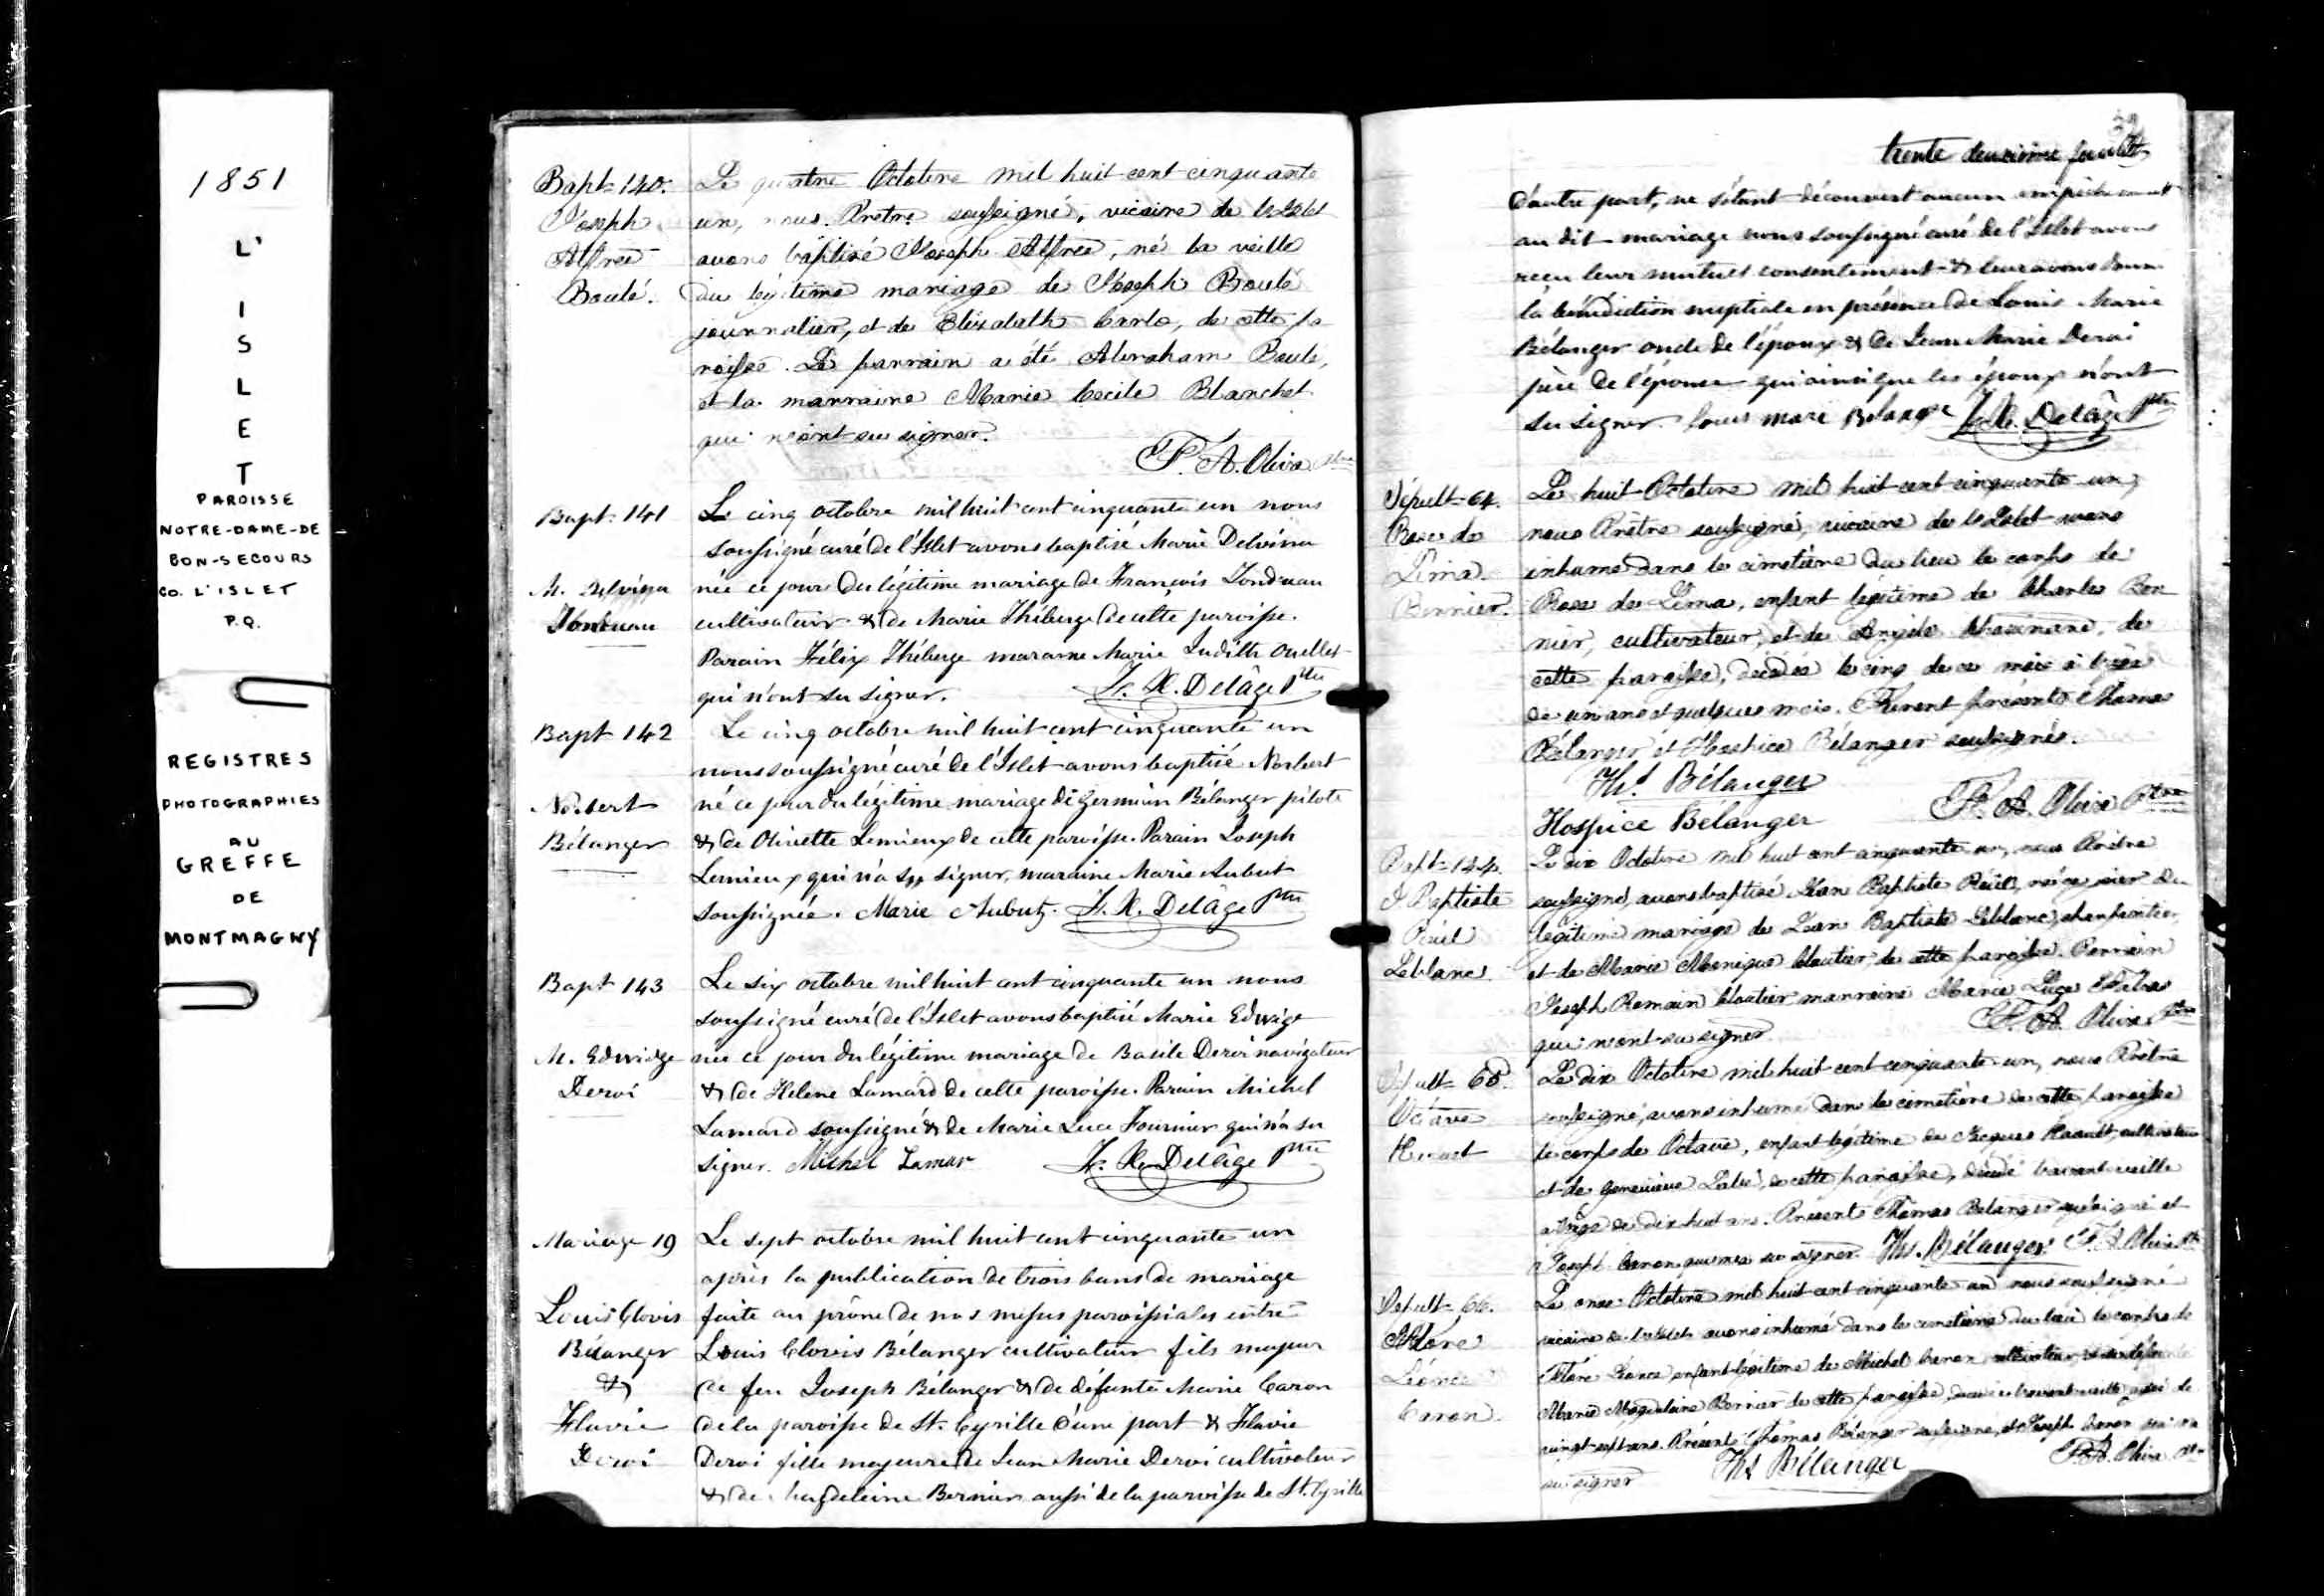 1851
L'
I
S
L
E
T
PAROISSE
NOTRE-DAME-DE
BON-SECOURS
CO. L'ISLET
P.Q.
REGISTRES
PHOTOGRAPHIES
AU
GREFFE
DE
MONTMAGNY
Bapt. 140.
Joseph
Alfred
Boulé.
Le quatre Octobre mil huit cent cinquante
un, nous Prêtre soussigné, vicaire de l'Islet
avons baptisé Joseph Alfred, né la veille
du légitime mariage de Joseph Boulé
journalier, et de Elizabeth, de cette pa
roisse. Le parrain a été Abraham Boulé,
et la marraine Marie Cecile Blanchet
qui n'ont su signer.
F. A. Oliva Ptre
Bapt. 141
M. Delvina
Tondreau
Le cinq octobre mil huit cent cinquante un nous
soussigné curé de l'Islet avons baptisé Marie Delvina
née ce jour du légitime mariage de François Tondreau
cultivateur & de Marie Théberge de cette paroisse.
Parain Félix Théberge maraine Marie Judith Ouellet
qui n'ont su signer. F. X. Delâge Ptre
Bapt 142
Norbert
Bélanger
Le cinq octobre mil huit cent cinquante un
nous soussigné curé de l'Islet avons baptisé Norbert
né ce jour du légitime mariage de Germain Bélanger pilote
& de Olivette Lemieux de cette paroisse. Parain Joseph
Lemieux qui n'a su signer, maraine Marie Aubut
soussignée. Marie Aubut. F. X. Delâge Ptre
Bapt 143
M. Edwidge
Deroi
Le six octobre mil huit cent cinquante un nous
soussigné curé de l'Islet avons baptisé Marie Edwige
née ce jour du légitime mariage de Basile Deroi navigateur
& de Helene Lamard de cette paroisse. Parain Michel
Lamard soussigné & de Marie Luce Fournier qui n'a su
signer. Michel Lamar F. X. Delâge Ptre
Mariage 19
Louis Clovis
Bélanger
&
Flavie
Deroi
Le sept octobre mil huit cent cinquante un
après la publication de trois bans de mariage
faite au prône de nos messes paroissiales entre
Louis Clovis Bélanger cultivateur fils majeur
de feu Joseph Bélanger & de défunte Marie Caron
de la paroisse de St. Cyrille d'une part & Flavie
Deroi fille majeure de Jean Marie Deroi cultivateur
& de Magdeleine Bernier aussi de la paroisse de St. Cyrille
32
trente deuxième feuillet
d'autre part, ne s'étant découvert aucun empêchement
au dit mariage nous soussigné curé de l'Islet avons
reçu leur mutuel consentement & leur avons donné
la bénédiction nuptiale en présence de Louis Marie
Bélanger oncle de l'époux & de Jean Marie Deroi
père de l'épouse qui ainsi que les époux n'ont
su signer. F. X. Delâge Ptre
Sépult. 64.
Rose de
Lima
Bernier.
Le huit Octobre mil huit cent cinquante un,
nous Prêtre soussigné, vicaire de l'Islet avons
inhumé dans le cimetière du lieu le corps de
Rose de Lima, enfant légitime de Charles Ber
nier, cultivateur, et de Angèle, de
cette paroisse, décédée le cinq de ce mois à l'âge
de un ans et quelques mois. Furent présents Thomas
Bélanger et Hospice Bélanger soussignés.
Ths. Bélanger
Hospice Bélanger F. A. Oliva Ptre
Bapt. 144.
J Baptiste
Leblanc
Le dix Octobre mil huit cent cinquante un, nous Prêtre
soussigné, avons baptisé Jean Baptiste, né hier du
légitime mariage de Jean Baptiste Leblanc, charpentier,
et de Marie Monique Cloutier, de cette paroisse. Parrain
Joseph Romain Cloutier marraine Marie Luce
qui n'ont su signer. F. A. Oliva Ptre
Sépult. 65.
Octave
Le dix Octobre mil huit cent cinquante un, nous Prêtre
soussigné, avons inhumé dans le cimetière de cette paroisse
le corps de Octave, enfant légitime de Jacques, cultivateur
et de Genevieve, de cette paroisse, décédé l'avant-veille
à l'âge de dix huit ans. Présents Thomas Bélanger soussigné et
Joseph Caron qui n'a su signer. Ths. Bélanger F. A. Oliva Ptre
Sépult. 66.
Léonce
Caron.
Le onze Octobre mil huit cent cinquante un nous soussigné
vicaire de l'Islet avons inhumé dans le cimetière du lieu le corps de
Léonce enfant légitime de Michel Caron cultivateur & de défunte
Marie Magdelaine Bernier de cette paroisse, l'avant-veille, âgé de
vingt-sept ans. Présents Thomas Bélanger soussigné, et Joseph Caron qui n'a
su signer Ths Bélanger F. A. Oliva Ptre